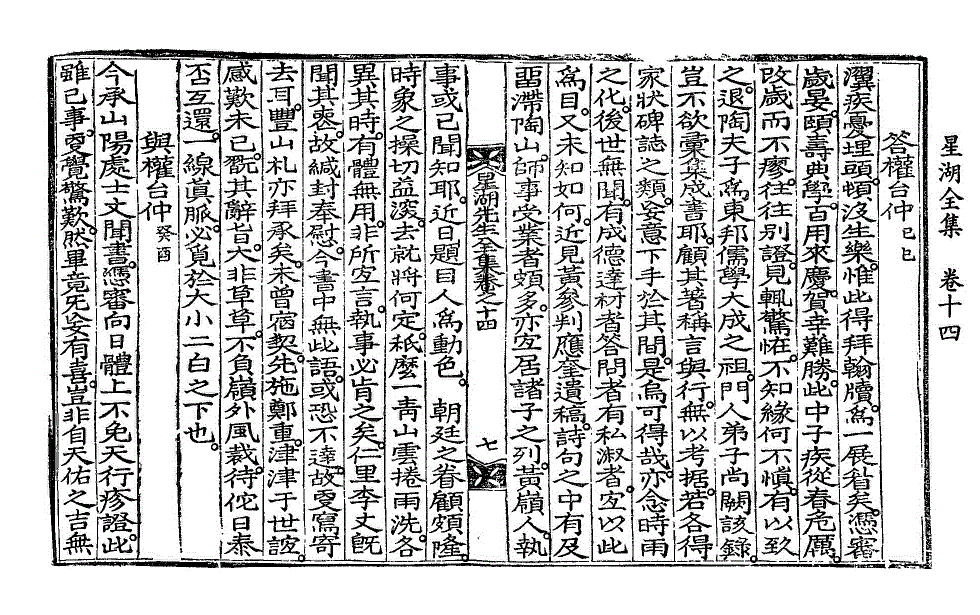 星湖全集　卷十四
答權台仲 己巳
瀷疾憂埋頭。頓沒生樂。惟此得拜翰牘。爲一展眉矣。憑審
歲晏。頤壽典學。百用來慶。賀幸難勝。此中子疾從春危厲。
改歲而不瘳。往往別證。見輒驚恠。不知緣何不愼。有以致
之。退陶夫子爲東邦儒學大成之祖。門人弟子尙闕該錄。
豈不欲彙集成書耶。顧其著稱言與行。無以考据。若各得
家狀碑誌之類。妄意下手於其間。是烏可得哉。亦念時雨
之化。後世無聞。有成德達材者答問者有私淑者。宜以此
爲目。又未知如何。近見黃參判應奎遺稿。詩句之中有及
畱滯陶山。師事受業者頗多。亦宜居諸子之列。黃嶺人。執
星湖先生全集卷之十四　七
事或已聞知耶。近日題目人爲動色。　朝廷之眷顧頗隆。
時象之操切益深。去就將何定。秪麽一靑山雲捲雨洗。各
異其時。有體無用。非所宜言。執事必肯之矣。仁里李丈旣
聞其喪。故緘封奉慰。今書中無此語。或恐不達。故更寫寄
去耳。豐山札亦拜承矣。未曾宿契。先施鄭重。津津于世誼。
感歎未已。翫其辭旨。大非草草。不負嶺外風裁。待佗日泰
否互還。一線眞脈。必覓於大小二白之下也。
與權台仲 癸酉
今承山陽處士文聞書。憑審向日體上不免天行疹證。此
雖已事。更覺驚歎。然畢竟旡妄有喜。豈非自天佑之吉無